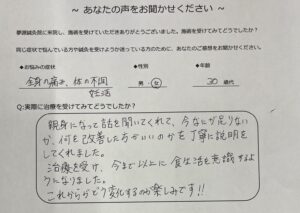 ～ あなたの声をお聞かせください ～
夢源鍼灸院に来院し、施術を受けていただきありがとうございました。施術を受けてみてどうでしたか?
同じ症状で悩んでいる方や鍼灸を受けようか迷っている方のために、あなたのご感想をお聞かせください。
◆お悩みの症状 ◆性別 ◆年齢
全身の痛み、体の不調 男・女 30 歳代
妊活
Q:実際に治療を受けてみてどうでしたか?
親身になって話を聞いてくれて、今なにが足りない
か、何を改善した方がいいのかを丁寧に説明を
してくれました。
治療を受け、今まで以上に食生活を意識するよ
うになりました。
これからからだがどう変化するのか楽しみです!!